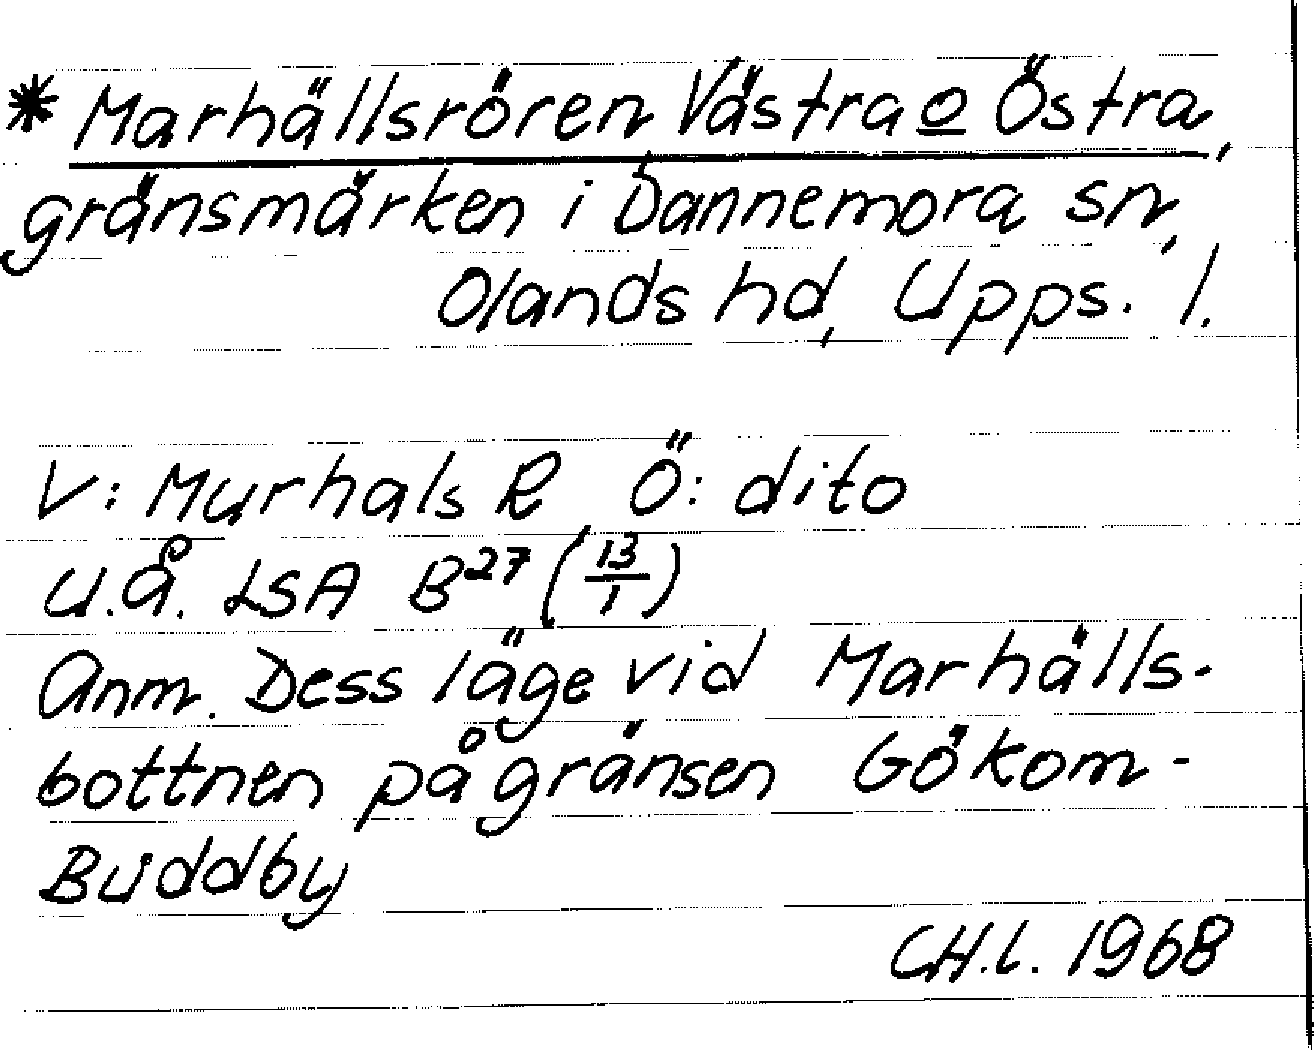 * Marhällsrören Västra o Östra,
gränsmärken i Dannemora sn,
Olands hd, Upps. l.
V: Murhals R Ö: dito
U.Å. LSA B27 (13/1)
Anm. Dess läge vid Marhälls-
bottnen på gränsen Gökom-
Buddby
CH.L. 1968